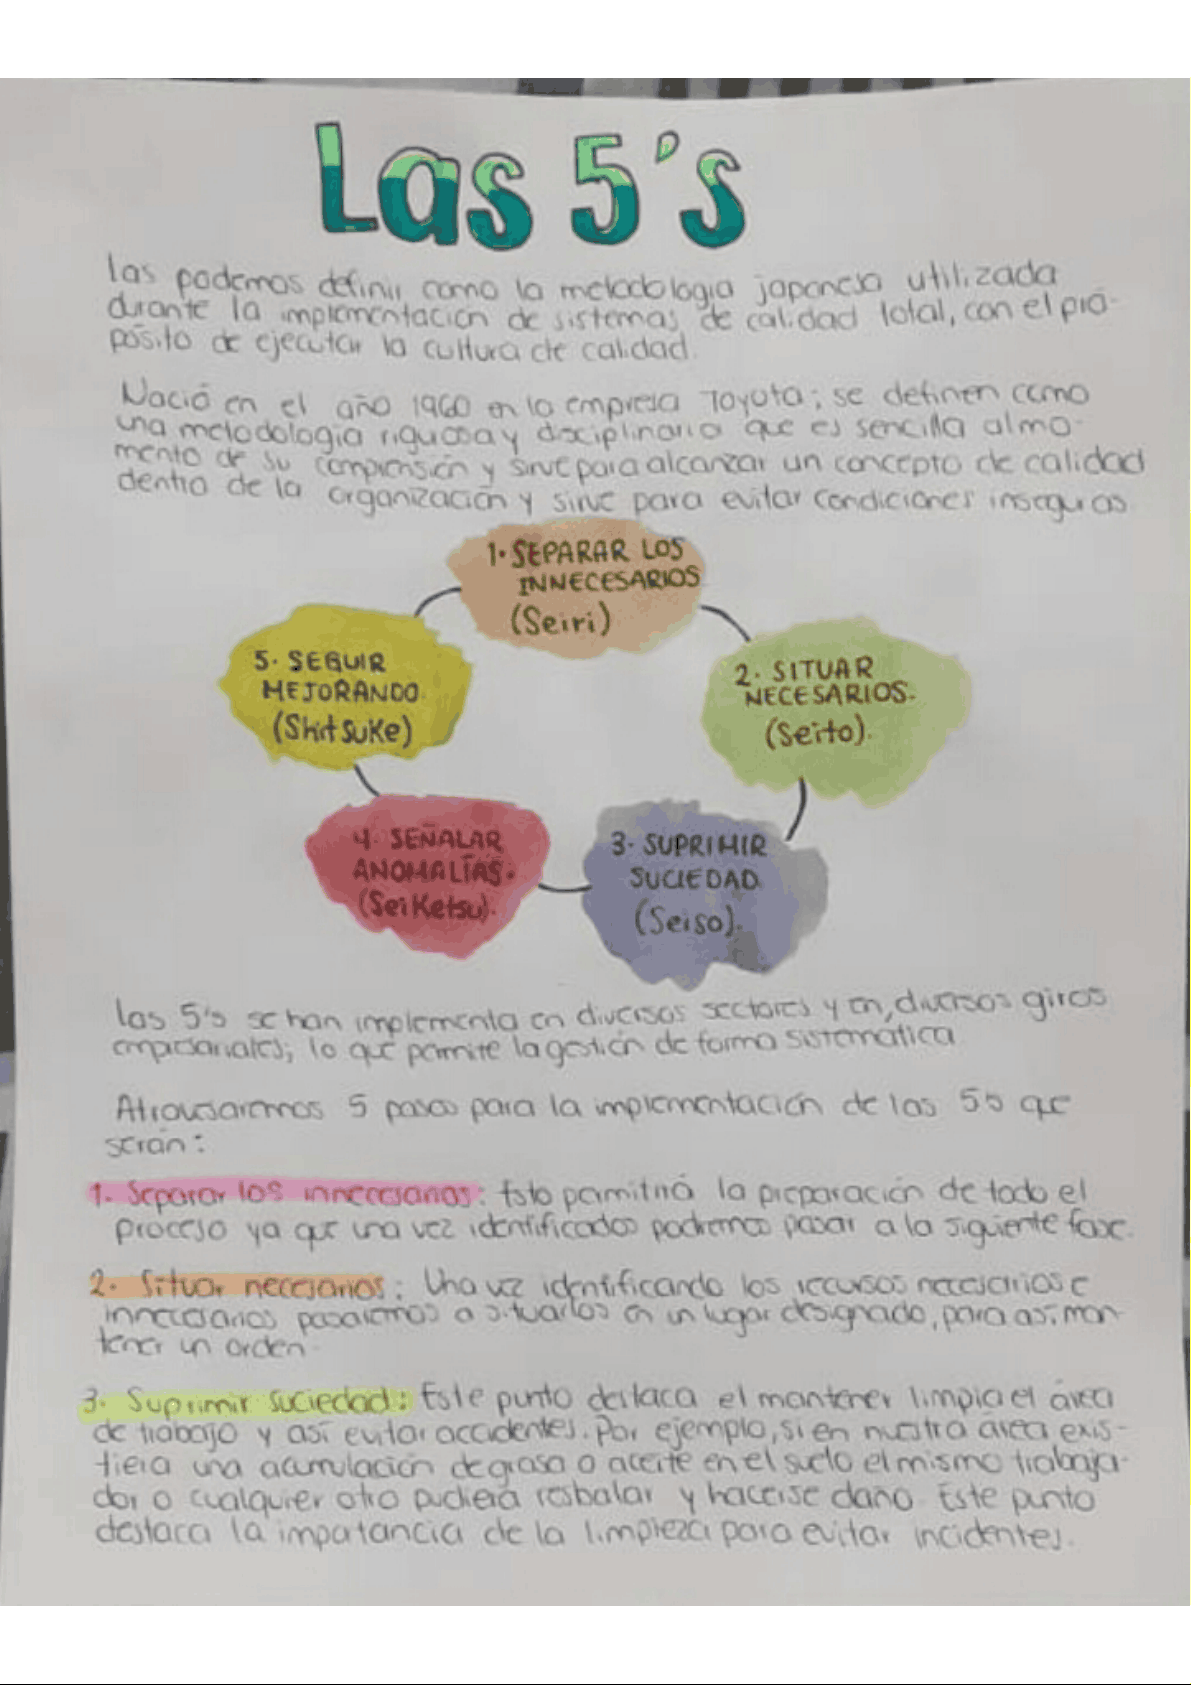 Las 5's
las podemos definir como la metodologia japonesa utilizada
durante la implementación de sistemas de calidad total, con el pro-
pósito de ejecutar la cultura de calidad.
Nació en el año 1960 en la empresa Toyota; se definen como
una metodologia rigurosa y disciplinaria que es sencilla al mo-
mento de su comprensión y sirve para alcanzar un concepto de calidad
dentro de la organización y sirve para evitar condiciones inseguras.
1. SEPARAR LOS
INNECESARIOS
(Seiri)
2. SITUAR
NECESARIOS.
(Seito).
3. SUPRIMIR
SUCIEDAD
(Seiso).
4. SEÑALAR
ANOMALÍAS.
(Seiketsu).
5. SEGUIR
MEJORANDO.
(Shitsuke)
las 5's se han implementa en diversos sectores y en, diversos giros
empresariales; lo que permite la gestión de forma sistematica
Atravesaremos 5 pasos para la implementación de las 5s que
serán:
1. Separar los innecesarios: Esto permitirá la preparación de todo el
proceso ya que una vez identificados podremos pasar a la siguiente fase.
2. Situar necesarios: Una vez identificando los recursos necesarios e
innecesarios pasaremos a situarlos en un lugar designado, para asi man-
tener un orden.
3. Suprimir suciedad: Este punto destaca el mantener limpia el área
de trabajo y así evitar accidentes. Por ejemplo, si en nuestra área exis-
tiera una acumulación de grasa o aceite en el suelo el mismo trabaja-
dor o cualquier otro pudiera resbalar y hacerse daño. Este punto
destaca la importancia de la limpieza para evitar incidentes.